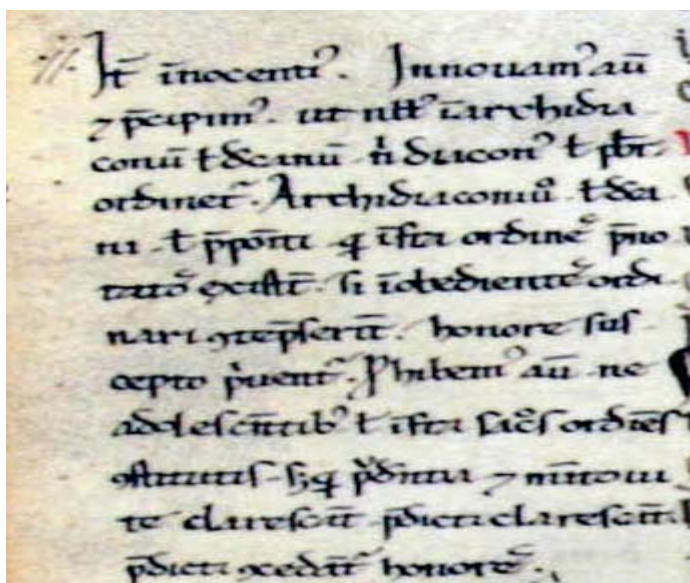 It̄ īnocentiꝰ. Innouamꝰ aū
⁊ p̄cipimꝰ. ut nllꝰ ī archidia
conū ł decanū n̓ diaconꝰ ł pb̄r
ordinet᷑. Archidiaconi ů ł deca
ni ł p̄poīti q̓ īfra ordineˢ p̄no
tatoˢ existt̄. si īobedienteˢ ordi
nari ꝯtēpserīt. honore sus
cepto p̓uent᷑. Ꝓhibemꝰ aū ne
adolescētibꝰ ł īfra sac̊s ordīes
ꝯstitutis. sꝫ q̓ pͮdētia ⁊ m̄ito ui
te clarescūt p̄dicti clarescūt
p̄dicti ꝯcedāt᷑ honoreˢ.